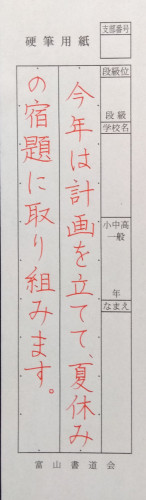 硬筆用紙
支部番号
段級位
段級
学校名
小中高
一般
年
なまえ
今年は計画を立てて、夏休み
の宿題に取り組みます。
富山書道会